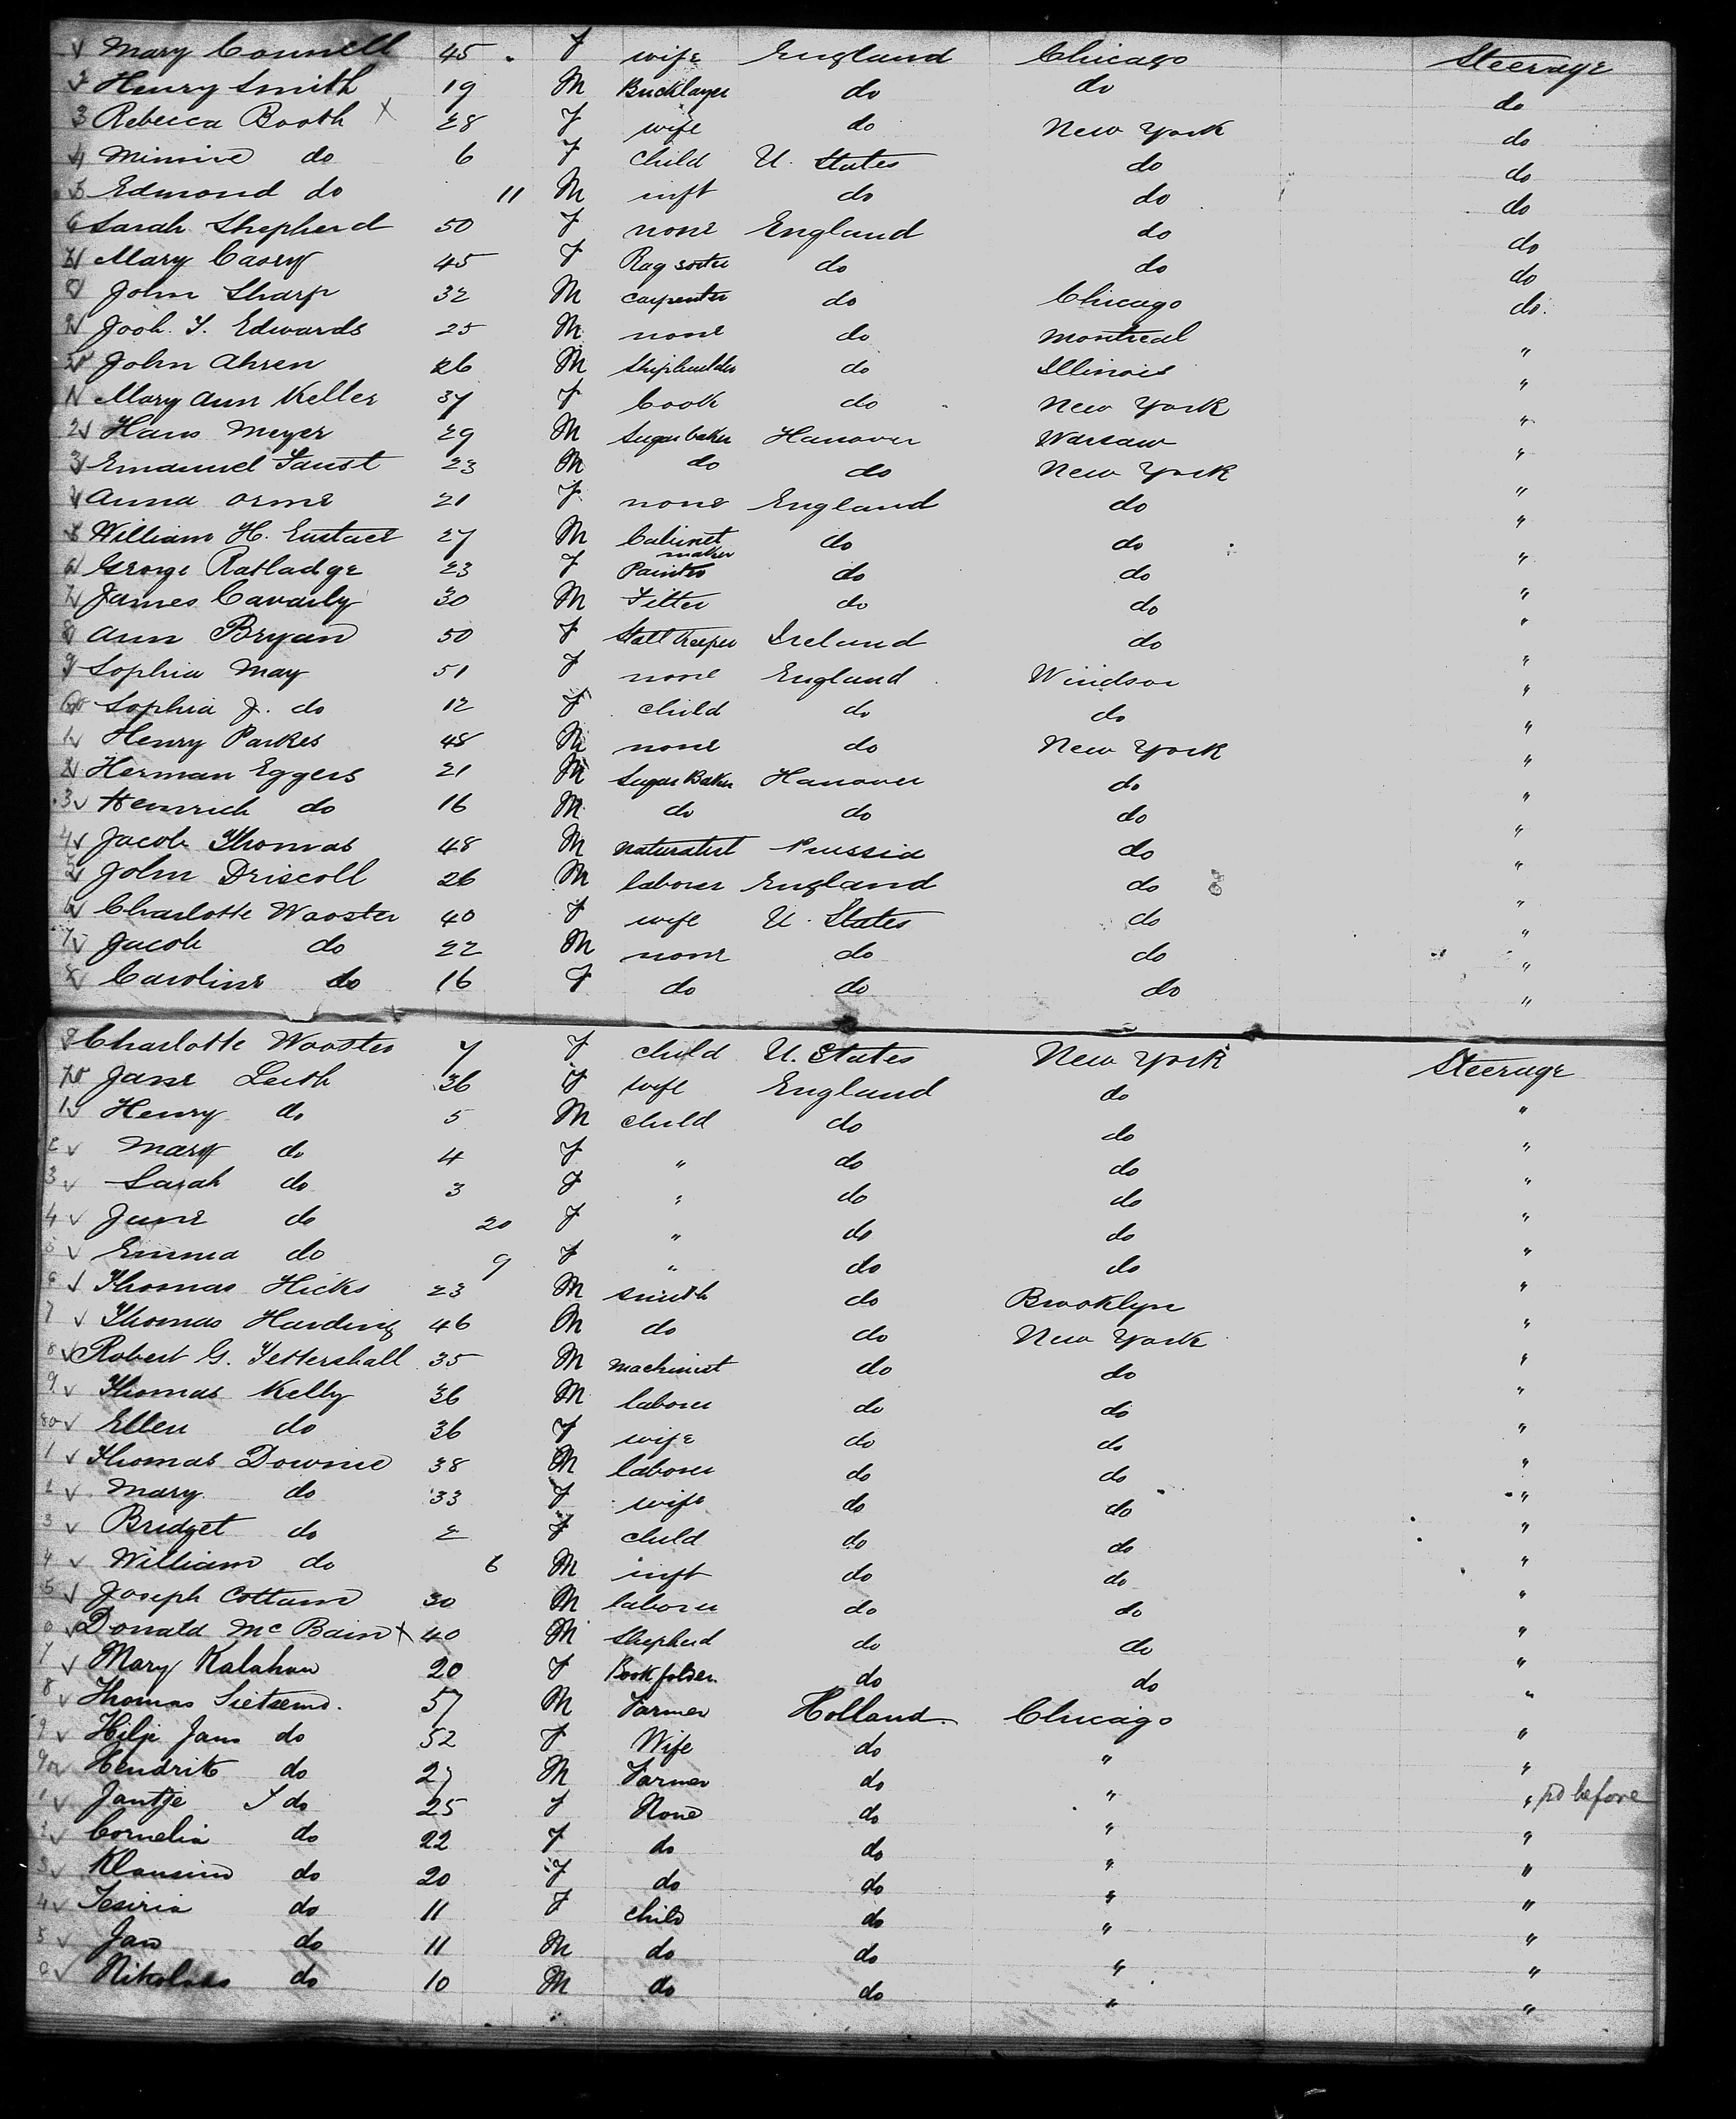 1 Mary Connell 45 F wife England Chicago Steerage
2 Henry Smith 19 M Bricklayer do do do
3 Rebecca Booth X 28 F wife do New York do
4 Minnie do 6 F child U. States do do
5 Edmond do 11 M inft do do do
6 Sarah Shepherd 50 F none England do do
7 Mary Casey 45 F Rag sorter do do do
8 John Sharp 32 M carpenter do Chicago do.
9 Jooh. T. Edwards 25 M none do Montreal "
50 John Ahren 26 M Shipbuilder do Illinois "
1 Mary Ann Keller 37 F Cook do New York "
2 Hans Meyer 29 M Sugar baker Hanover Warsaw "
3 Emanuel Faust 23 M do do New York "
4 Anna Orme 21 F none England do "
5 William H. Eustace 27 M Cabinet maker do do "
6 George Ratladge 23 F Painter do do "
7 James Cavarly 30 M Fitter do do "
8 Ann Bryan 50 F Stall Keeper Ireland do "
9 Sophia May 51 F none England Windsor "
60 Sophia J. do 12 F child do do "
1 Henry Parkes 48 M none do New York "
2 Herman Eggers 21 M Sugar Baker Hanover do "
3 Heinrich do 16 M do do do "
4 Jacob Thomas 48 M naturalist Prussia do "
5 John Driscoll 26 M laborer England do "
6 Charlotte Wooster 40 F wife U. States do "
7 Jacob do 22 M none do do "
8 Caroline do 16 F do do do "
9 Charlotte Wooster 7 F child U. States New York Steerage
70 Jane Leith 36 F wife England do "
1 Henry do 5 M child do do "
2 Mary do 4 F " do do "
3 Sarah do 3 F " do do "
4 Jane do 20 F " do do "
5 Emma do 9 F " do do "
6 Thomas Hicks 23 M smith do Brooklyn "
7 Thomas Harding 46 M do do New York "
8 Robert G. Tettershall 35 M machinist do do "
9 Thomas Kelly 36 M laborer do do "
80 Ellen do 36 F wife do do "
1 Thomas Downie 38 M laborer do do "
2 Mary do 33 F wife do do "
3 Bridget do 2 F child do do "
4 William do 6 M inft do do "
5 Joseph Cottam 30 M laborer do do "
6 Donald McBain X 40 M Shepherd do do "
7 Mary Kalahan 20 F Book folder do do "
8 Thomas Sietsema. 57 M Farmer Holland. Chicago "
9 Hilje Jans do 52 F Wife do " "
90 Hendrik do 27 M Farmer do " "
1 Jantje T do 25 F None do " " pd before
2 Cornelia do 22 F do do " "
3 Klaasina do 20 F do do " "
4 Tesiria do 11 F child do " "
5 Jan do 11 M do do " "
6 Nikolaas do 10 M do do " "